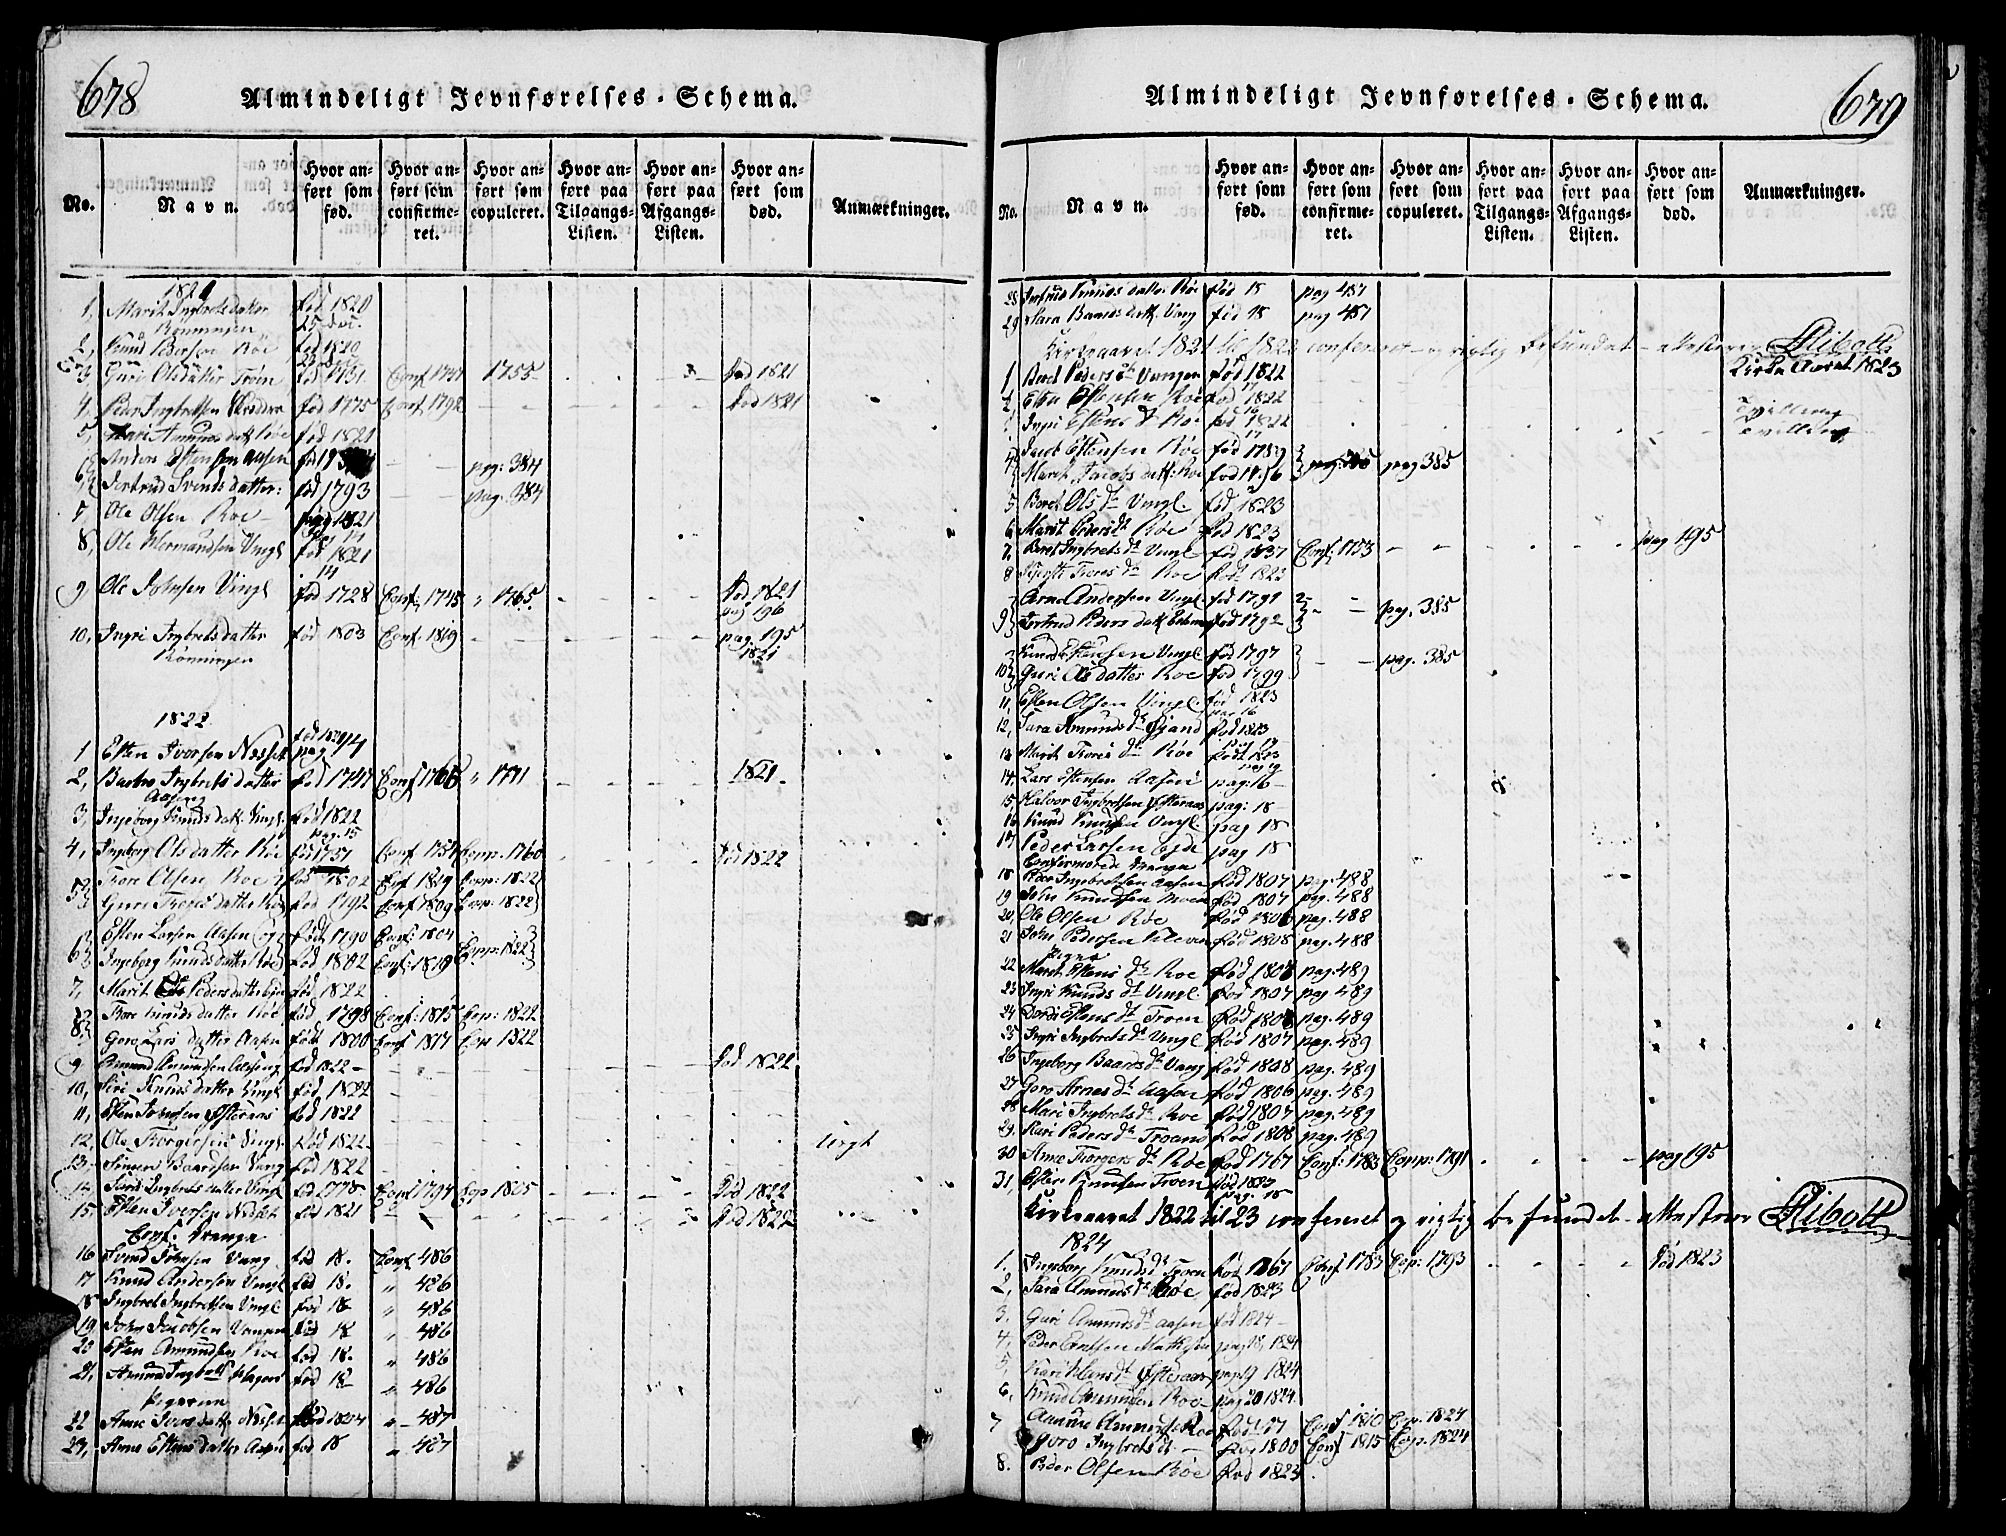 678
Almindeligt Jevnførelses-Schema.
No. Navn. Hvor anført som fød. Hvor anført som confirmeret. Hvor anført som copuleret. Hvor anført paa Tilgangs-Listen. Hvor anført paa Afgangs-Listen. Hvor anført som død. Anmærkninger.
1821
1, Marit Ingbretsdatter fød 1820
Rønningen 25 Dec.
2, Knud Pedersen Røe fød 1820
3, Guri Olsdatter Troen fød 1731 Conf 1747 1755 død 1821
4, Peder Ingbretsen fød 1775 Conf. 1792 død 1821
5, Kari Amunds datt. Røe fød 1821
6, Anders Estensen Aasen pag: 384
Gertrud Svends datter: fød 1793 pag. 384
7 Ole Olsen Roe 1821
8, Ole Hermandsen Vingl fød 1821
14
9, Ole Johnsen Vingl fød 1728 Conf. 1745 " 1765. død 1821
pag 196
10, Ingri Ingbretsdatter fød 1803 Conf 1819 pag. 195
Rønningen 1821
1822
1 Esten Iversen Nesset
2, Ingbrets datter fød 1747 1771 1821.
Aasen
3, Ingeborg Knuds dat. Vingl. fød 1822
pag. 15
4, Ingeborg Olsdatter Røe fød 1737 Conf 1754 Copp. 1760 død 1822
5 Tore Olsen Roe fød 1802 Conf 1819 Copp: 1822
Guri Tores datter Røe fød 1792 Conf 1809 Cop: 1822
6 Esten Larsen Aasen og født 1790 Conf: 1804
Ingeborg Knuds datter Røe fød 1802 Conf: 1819 Copp: 1822
7, Marit Peders datter fød 1822
8 Tore Knuds datter Røe fød 1798 Conf: 1815 Cop: 1822
Goro Lars datter Aasen født 1800 Conf 1817 Cop 1822
9 Amund Amundsen Aasen fød 1822 død 1822
10, Siri Knuds datter Vingl fød 1822
11, Esten Johnsen Østeraas fød 1822
12, Ole Torgersen Vingl. fød 1822 Urigt
13, Simen Baardsen Vang fød 1822
14, Ingbrets datter Vingl fød 1778 Conf 1794 Cop 1805 Død 1822
15, Esten Iversen Nesset fød 1821 Død 1822
Conf. Drenge
16 Svend Johnsen Vang fød 18. Conf 486
17 Knud Andersen Vingl fød 18. " 486
18 Ingbret Ingbretsen Vingl fød 18 " 486
19 John Jacobsen Vangen fød 18 " 486
20 Esten Amundsen Roe fød 18. " 486
21, Amund Ingbretsen fød 18 " 486
Pigerne
22 Anne Ivers datter Nesset fød 1804 " 487
23, Anne Estens datter Aasen fød 18 " 487
679
Almindeligt Jevnførelses-Schema.
No. Navn. Hvor anført som fød. Hvor anført som confirmeret. Hvor anført som copuleret. Hvor anført paa Tilgangs-Listen. Hvor anført paa Afgangs-Listen. Hvor anført som død. Anmærkninger.
28 Gertrud Knuds datter Røe fød 18 pag 487
29 Sara Baards datt. Vang fød 18 pag 487
Kirkeaaret 1821 til 1822 confereret og rigtig befundet attesterer Ribolt
Kirke Aaret 1823
1 Beret Peders dt Vangen fød 1822
2, Esten Røe fød 1822 Tvilling
Ingri Estens dt Roe fød 1822 Tvilling
4, Jacob Estensen Røe fød 1789 pag 385
Marit Jacobs datt: Roe fød 1796
5 Beret Ols dt Vingl. fød 1823
6 Marit Peders dt Røe fød 1823
7, Beret Ingbrets dt Vingl fød 1737 Conf: 1753 pag 195
8 Tores dt Roe fød 1823
9 Arne Andersen Vingl fød 1791 pag. 385
Gertrud Peders datt. fød 1792
10 Knud Estensen Vingl fød 1797 pag. 385
Guri Olsdatter Roe fød 1799
11, Esten Olsen Vingl fød 1823
pag 16
12, Sara Amunds dt fød 1823
13 Marit Tores dt Røe født 1823
14, Lars Estensen Aasen pag: 16
15, Halvor Ingbretsen Østeraas pag: 18
16 Knud Knudsen Vingl pag 18
17 Peder Larsen Egde pag 18
Confirmerede Drenge
18 Peder Ingbretsen Aasen fød 1807 pag. 488
19 John Knudsen Moen fød 1807 pag. 488
20, Ole Olsen Røe fød 1806 pag. 488
21 John Pedersen fød 1808 pag. 488
Pigers
22 Marit Estens dt Roe fød 1808 pag. 489
23 Ingri Knuds dt Vingl. fød 1807 pag 489
24 Dordi Estens dt Troen fød 1808 pag. 489
25 Ingri Ingbrets dt Vingl fød 1807 pag. 489
26 Ingeborg Baards dt Vang fød 1808 pag. 489
27 Goro Arnes dt Aasen fød 1806 pag. 489
28 Mari Ingbrets dt Roe fød 1807 pag. 489
29. Kari Peders dt Troens fød 1808 pag. 489
30 Anne Torgers dt Røe fød 1767 Conf: 1783 Copp: 1791 pag 195
31, Esten Knudsen Troen fød 1823
pag. 18
Kirkeaaret 1822 til 23 confereret og rigtig befundet attesterer Ribolt
1824
1. Ingeborg Knuds dt Troen fød 1761 Conf 1783 Cop: 1793 død 1823
2, Sara Amunds dt Røe fød 1823
3. Guri Amunds dt Aasen fød 1824
4, Peder pag 18, 1824
5, Kari Hans dt Østeraas pag 19 1824
6, Knud Amundsen Roe pag 20 1824
7 Amund Amundsen Roe Conf 1810 Cop. 1824
Goro Ingbrets dt fød 1800 Conf 1815 Cop. 1824
8. Peder Olsen Røe fød 1823.